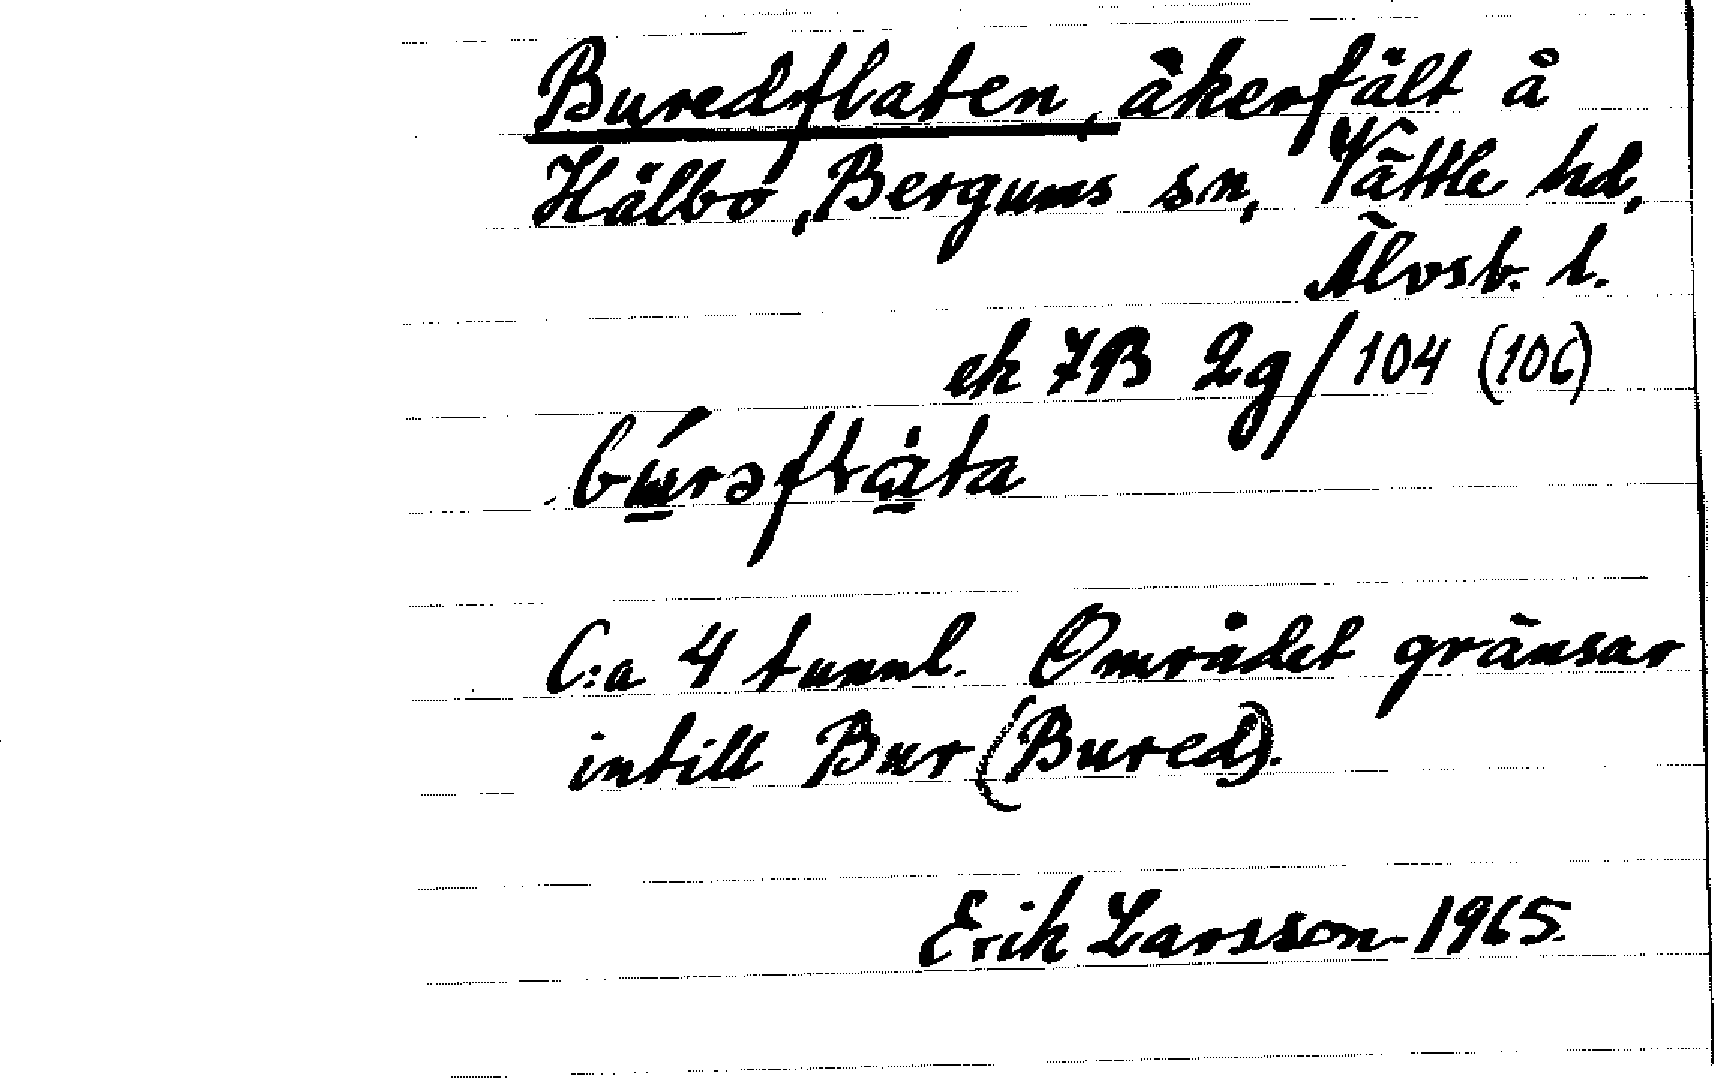 Buredflaten, åkerfält å
Hälbo, Bergums sn, Vättle hd,
Älvsb. l.
ek 7B 2g/104 (106)
bú̲rəflȧ̲ta
C:a 4 tunnl. Området gränsar
intill Bur (Bured).
Erik Larsson 1965.